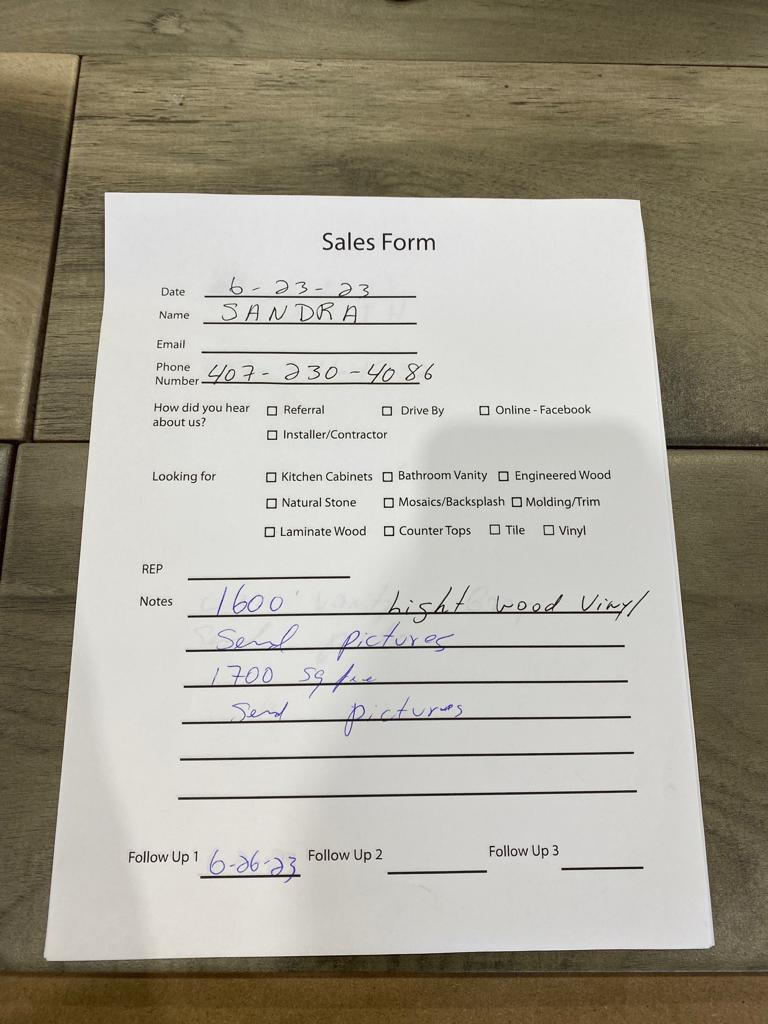 Sales Form
Date 6-23-23
Name SANDRA
Email
Phone Number 407-230-4086
How did you hear about us? ☐ Referral ☐ Drive By ☐ Online - Facebook
☐ Installer/Contractor
Looking for ☐ Kitchen Cabinets ☐ Bathroom Vanity ☐ Engineered Wood
☐ Natural Stone ☐ Mosaics/Backsplash ☐ Molding/Trim
☐ Laminate Wood ☐ Counter Tops ☐ Tile ☐ Vinyl
REP
Notes 1600 Light wood Vinyl
Send pictures
1700 sq
Send pictures
Follow Up 1 6-26-23 Follow Up 2 Follow Up 3